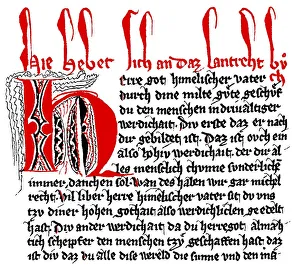 Hie hebet sich an daz lantreht bů
ch
Herre got himelischer vater
durch dine milte güte geschüf
du den menschen in drivaltiger
werdichait. Div erste daz er nach
dir gebildet ist. Daz ist ovch ein
also hohiv werdichait. der dir al
les menschlich chunne sunderlich
immer danchen sol. wan des haben wir gar michel
reht. Vil liber herre himelischer vater sit dv vns
tzv diner hohen gothait also werdichlichen geedelt
hast. Div ander werdichait da du herregot almæh
tich scheipfer den menschen tzv geschaffen hast. daz
ist div daz du alle dise werld die sunne vnd den